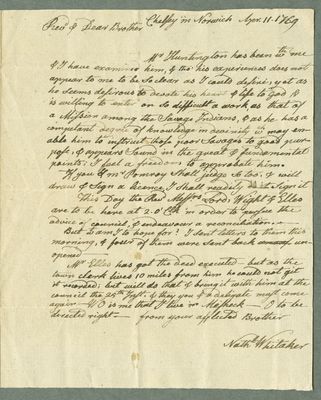 Revd & Dear Brother
Chelsey in Norwich Apr. 11. 1769
Mr Huntington has been wt me
& I have examind him, & tho his experiences does not
appear to me to be so clear as I could desire; yet as
he seems desirous to devote his heart & life to God & 
is willing to enter on so difficult a work as that of
a Mission among the Savage Indians, & as he has a
competent degree of knowledge in divinity wc may en-
able him to instruct those poor Savages to good pur-
pose, & appears sound in the great & fundamental
points; I feel a freedom to approbate him.
If you & mr Pomroy shall judge so too, & will
draw & sign a licence, I shall readily sign it
This Day the Revd Messrs Lord, Wight & Elles
are to be here at 2. o'Clk in order to pursue the
advice of council, & endeavour a reconciliation.
But wt am I to hope for? I sent letters to them this
morning, & some of them were sent back un-
opened
Mr Elles has got the deed executed - but as the
town clerk lives 10 miles from him he could not get
it recorded; but will do that & bring it with him at the
council the 25th Inst. & they you & a delegate must come
again - wo is me that I live in Meshech - to be
directed right - from your afflicted Brother
Nathl Whitaker